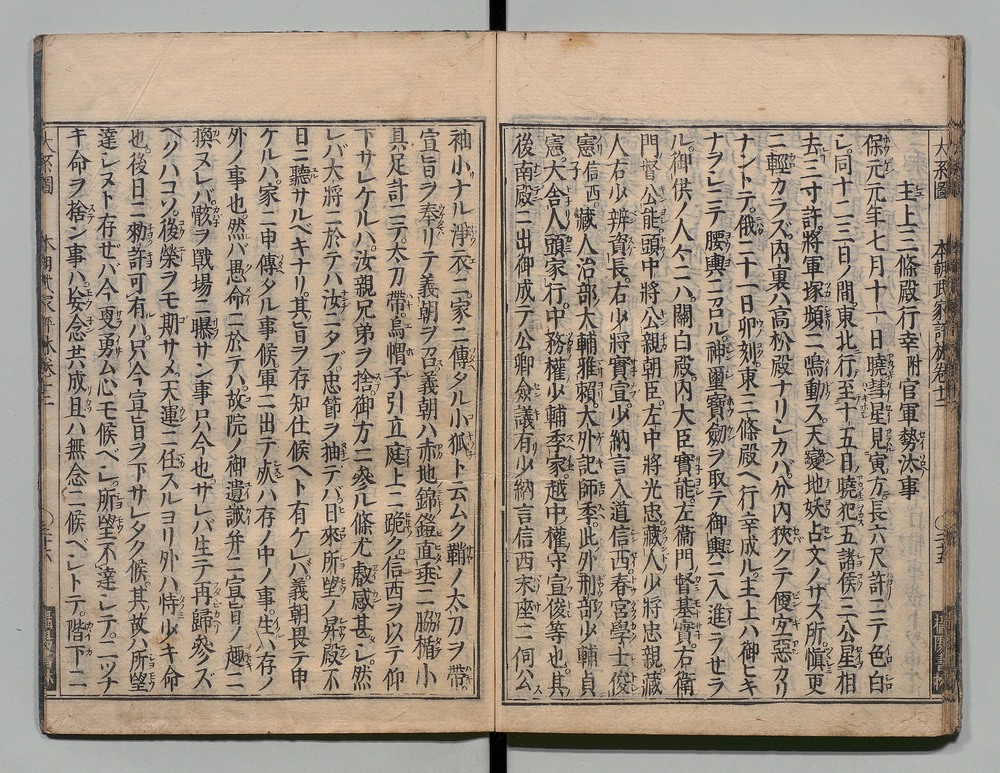 主上三條殿行幸附官軍勢汰事
保元元年七月十一日曉彗星見寅方長六尺許ニテ色白
シ同十二三日ノ間東北行至十五日曉犯五諸侯三公星相
去三寸許將軍塚頻ニ鳴動ス天變地妖占文ノサス所愼更
ニ輕カラス内裏ハ高松殿ナリシカバ分内狹クテ便宜惡カリ
ナントテ俄ニ十一日卯刻東三條殿へ行幸成ル主上ハ御ヒキ
ナラシニテ腰輿ニ召ル神璽寶劍ヲ取テ御輿ニ入進ラせラ
ル御供ノ人々ニハ關白殿内大臣實能左衞門督基實右衞
門督公能頭中將公親朝臣左中將光忠藏人少將忠親藏
人右少辨資長右少將實宣少納言入道信西春宮學士俊
憲信西子藏人治部大輔雅賴大外記師季此外刑部少輔貞
憲大舎人頭家行中務權少輔季家越中權守宣俊等也其
後南殿ニ出御成テ公卿僉議有少納言信西末座ニ伺公ス
袖小ナル淨衣ニ家ニ傳タル小狐ト云ムク鞘ノ太刀ヲ帶
宣旨ヲ奉リテ義朝ヲ召義朝ハ赤地錦鎧直垂ニ脇楯小
具足計ニテ太刀帶烏帽子引立庭上ニ跪ク信西ヲ以テ仰
下サレケルハ汝親兄弟ヲ捨御方ニ參ル條尤叡感甚シ然
レバ大將ニ於テハ汝ニタブ忠節ヲ抽デバ日來所望ノ昇殿不
日ニ聽サルベキナリ其旨ヲ存知仕候ヘト有ケレバ義朝畏テ申
ケルハ家ニ申傳タル事候軍ニ出テ死ハ存ノ中ノ事生ハ存ノ
外ノ事也然バ愚命ニ於テハ故院ノ御遺誡并ニ宣旨ノ趣ニ
換ヌレバ骸ヲ戰場ニ曝サン事只今也サレバ生テ再歸參ズ
ベクハコソ後榮ヲモ期サメ天運ニ任スルヨリ外ハ恃少キ命
也後日ニ勅許可有ハ只今宣旨ヲ下サレタク候其故ハ所望
達シヌト存ぜバ今一夏勇ム心モ候ベシ所望不達シテ二ツナ
キ命ヲ捨ン事ハ妄念共成且ハ無念ニ候ベシトテ階下ニ
大系圖 本朝武家評林卷十二 三十五
大系圖 本朝武家評林卷十二 三十六